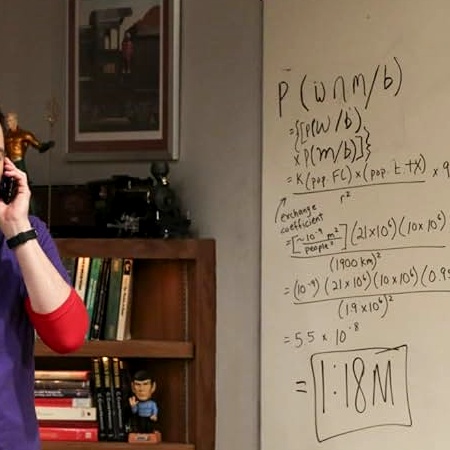 P (w∩m/b)
={[P(w/b)
×P(m/b)]}
= K (pop. FL) × (pop. E.TX) × 9
r²
exchange
coefficient
= [~10⁻⁹ m²/people²] (21×10⁶)(10×10⁶)
(1900 km)²
= (10⁻⁹)(21×10⁶)(10×10⁶)(0.9
(1.9×10⁶)²
= 5.5 × 10⁻⁸
= 1:18M